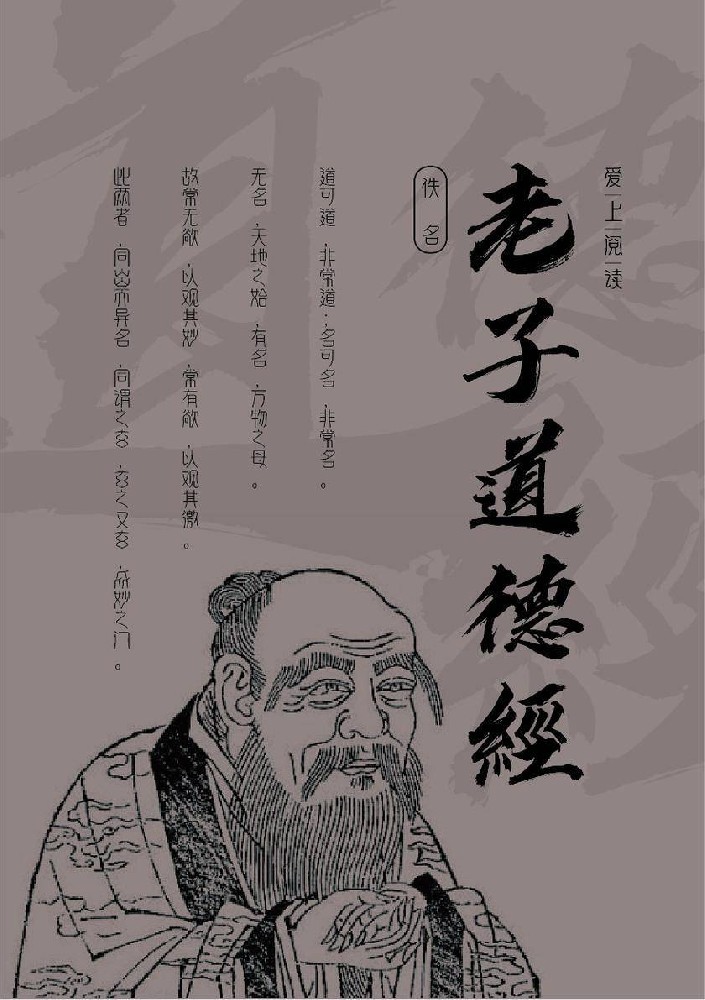 爱上阅读
老子道德經
佚名
道可道，非常道。名可名，非常名。
无名，天地之始，有名，万物之母。
故常无欲，以观其妙，常有欲，以观其徼。
此两者，同出而异名，同谓之玄，玄之又玄，众妙之门。